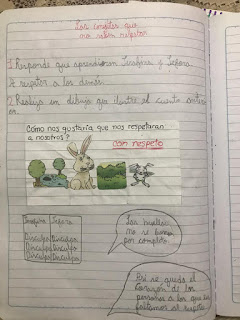 Los conejitos que
no sabían respetar
1 Responde que aprendieron Serafina y Séfora
A respetar a los demás.
2 Realiza un dibujo que ilustre el cuento anteri-
or.
Cómo nos gustaría que nos respetaran
a nosotros?
con respeto
Serafina Séfora
Disculpa Disculpa
Disculpa Disculpa
Disculpa Disculpa
Las huellas
no se borran
por completo.
Así se queda el
corazón de las
personas a las que les
faltamos al respeto